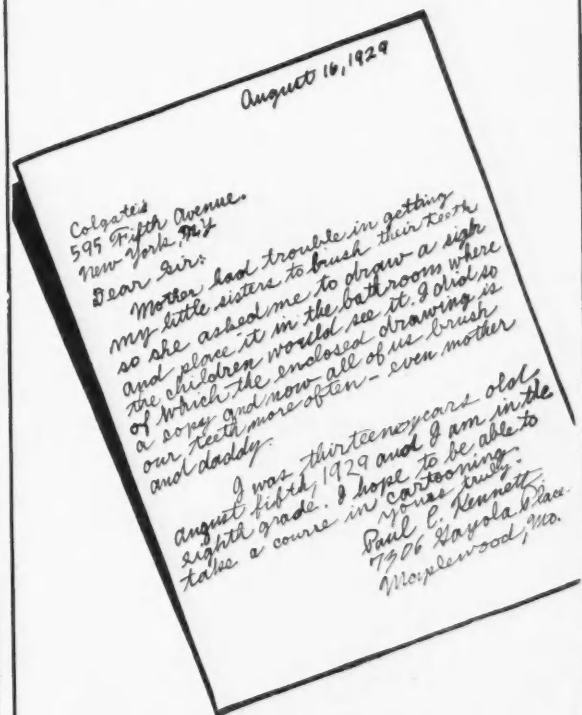 August 16, 1929
Colgate's
595 Fifth Avenue.
New York, N.Y.
Dear Sir:
Mother had trouble in getting
my little sisters to brush their teeth
so she asked me to draw a sign
and place it in the bathroom where
the children would see it. I did so
of which the enclosed drawing is
a copy and now all of us brush
our teeth more often - even mother
and daddy.
I was thirteen years old
august fifth, 1929 and I am in the
eighth grade. I hope to be able to
take a course in cartooning.
Yours truly.
Paul C. Kennett.
7306 Gayola Place
Maplewood, Mo.